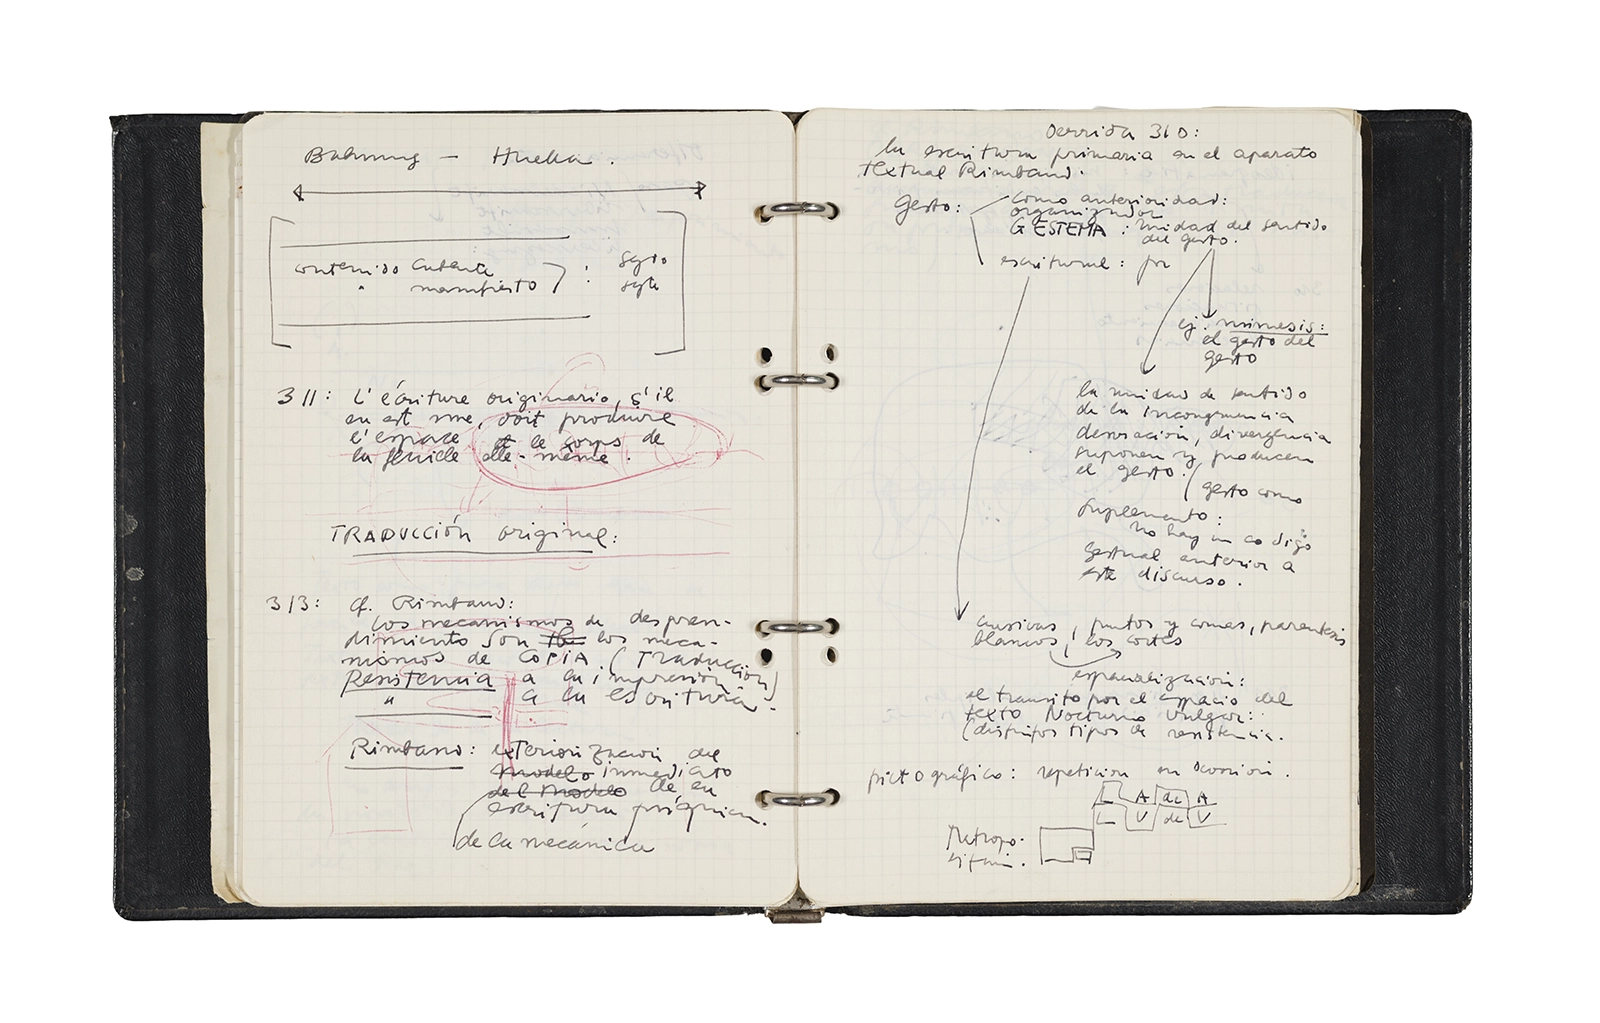 Bahnung — Huella.
contenido latente
" manifiesto
311: L'écriture originario, s'il
en est une, doit produire
l'espace et le corps de
la feuille elle-même.
TRADUCCIÓN original:
313: cf. Rimbaud:
los mecanismos de despren-
dimiento son los meca-
nismos de COPIA. (Traducción)
Resistencia a la impresión
" a la escritura.
Rimbaud: exteriorización del
modelo inmediato
del modelo de la
escritura psíquica.
de la mecánica
Derrida 310:
la escritura primaria en el aparato
textual Rimbaud.
gesto: como anterioridad:
organizador
GESTEMA: unidad del sentido
del gesto.
escritural: por
ej. mímesis:
el gesto del
gesto
la unidad de sentido
de la incongruencia
desviación, divergencia
suponen y producen
el gesto.
(gesto como
suplemento:
no hay un codigo
gestual anterior a
este discurso.
cursivas, puntos y comas, parentesis
blancos, los cortes
espacialización:
el transito por el espacio del
texto Nocturno Vulgar:
(distintos tipos de resistencia.
pictográfico: repeticion en
L A de A
L V de V